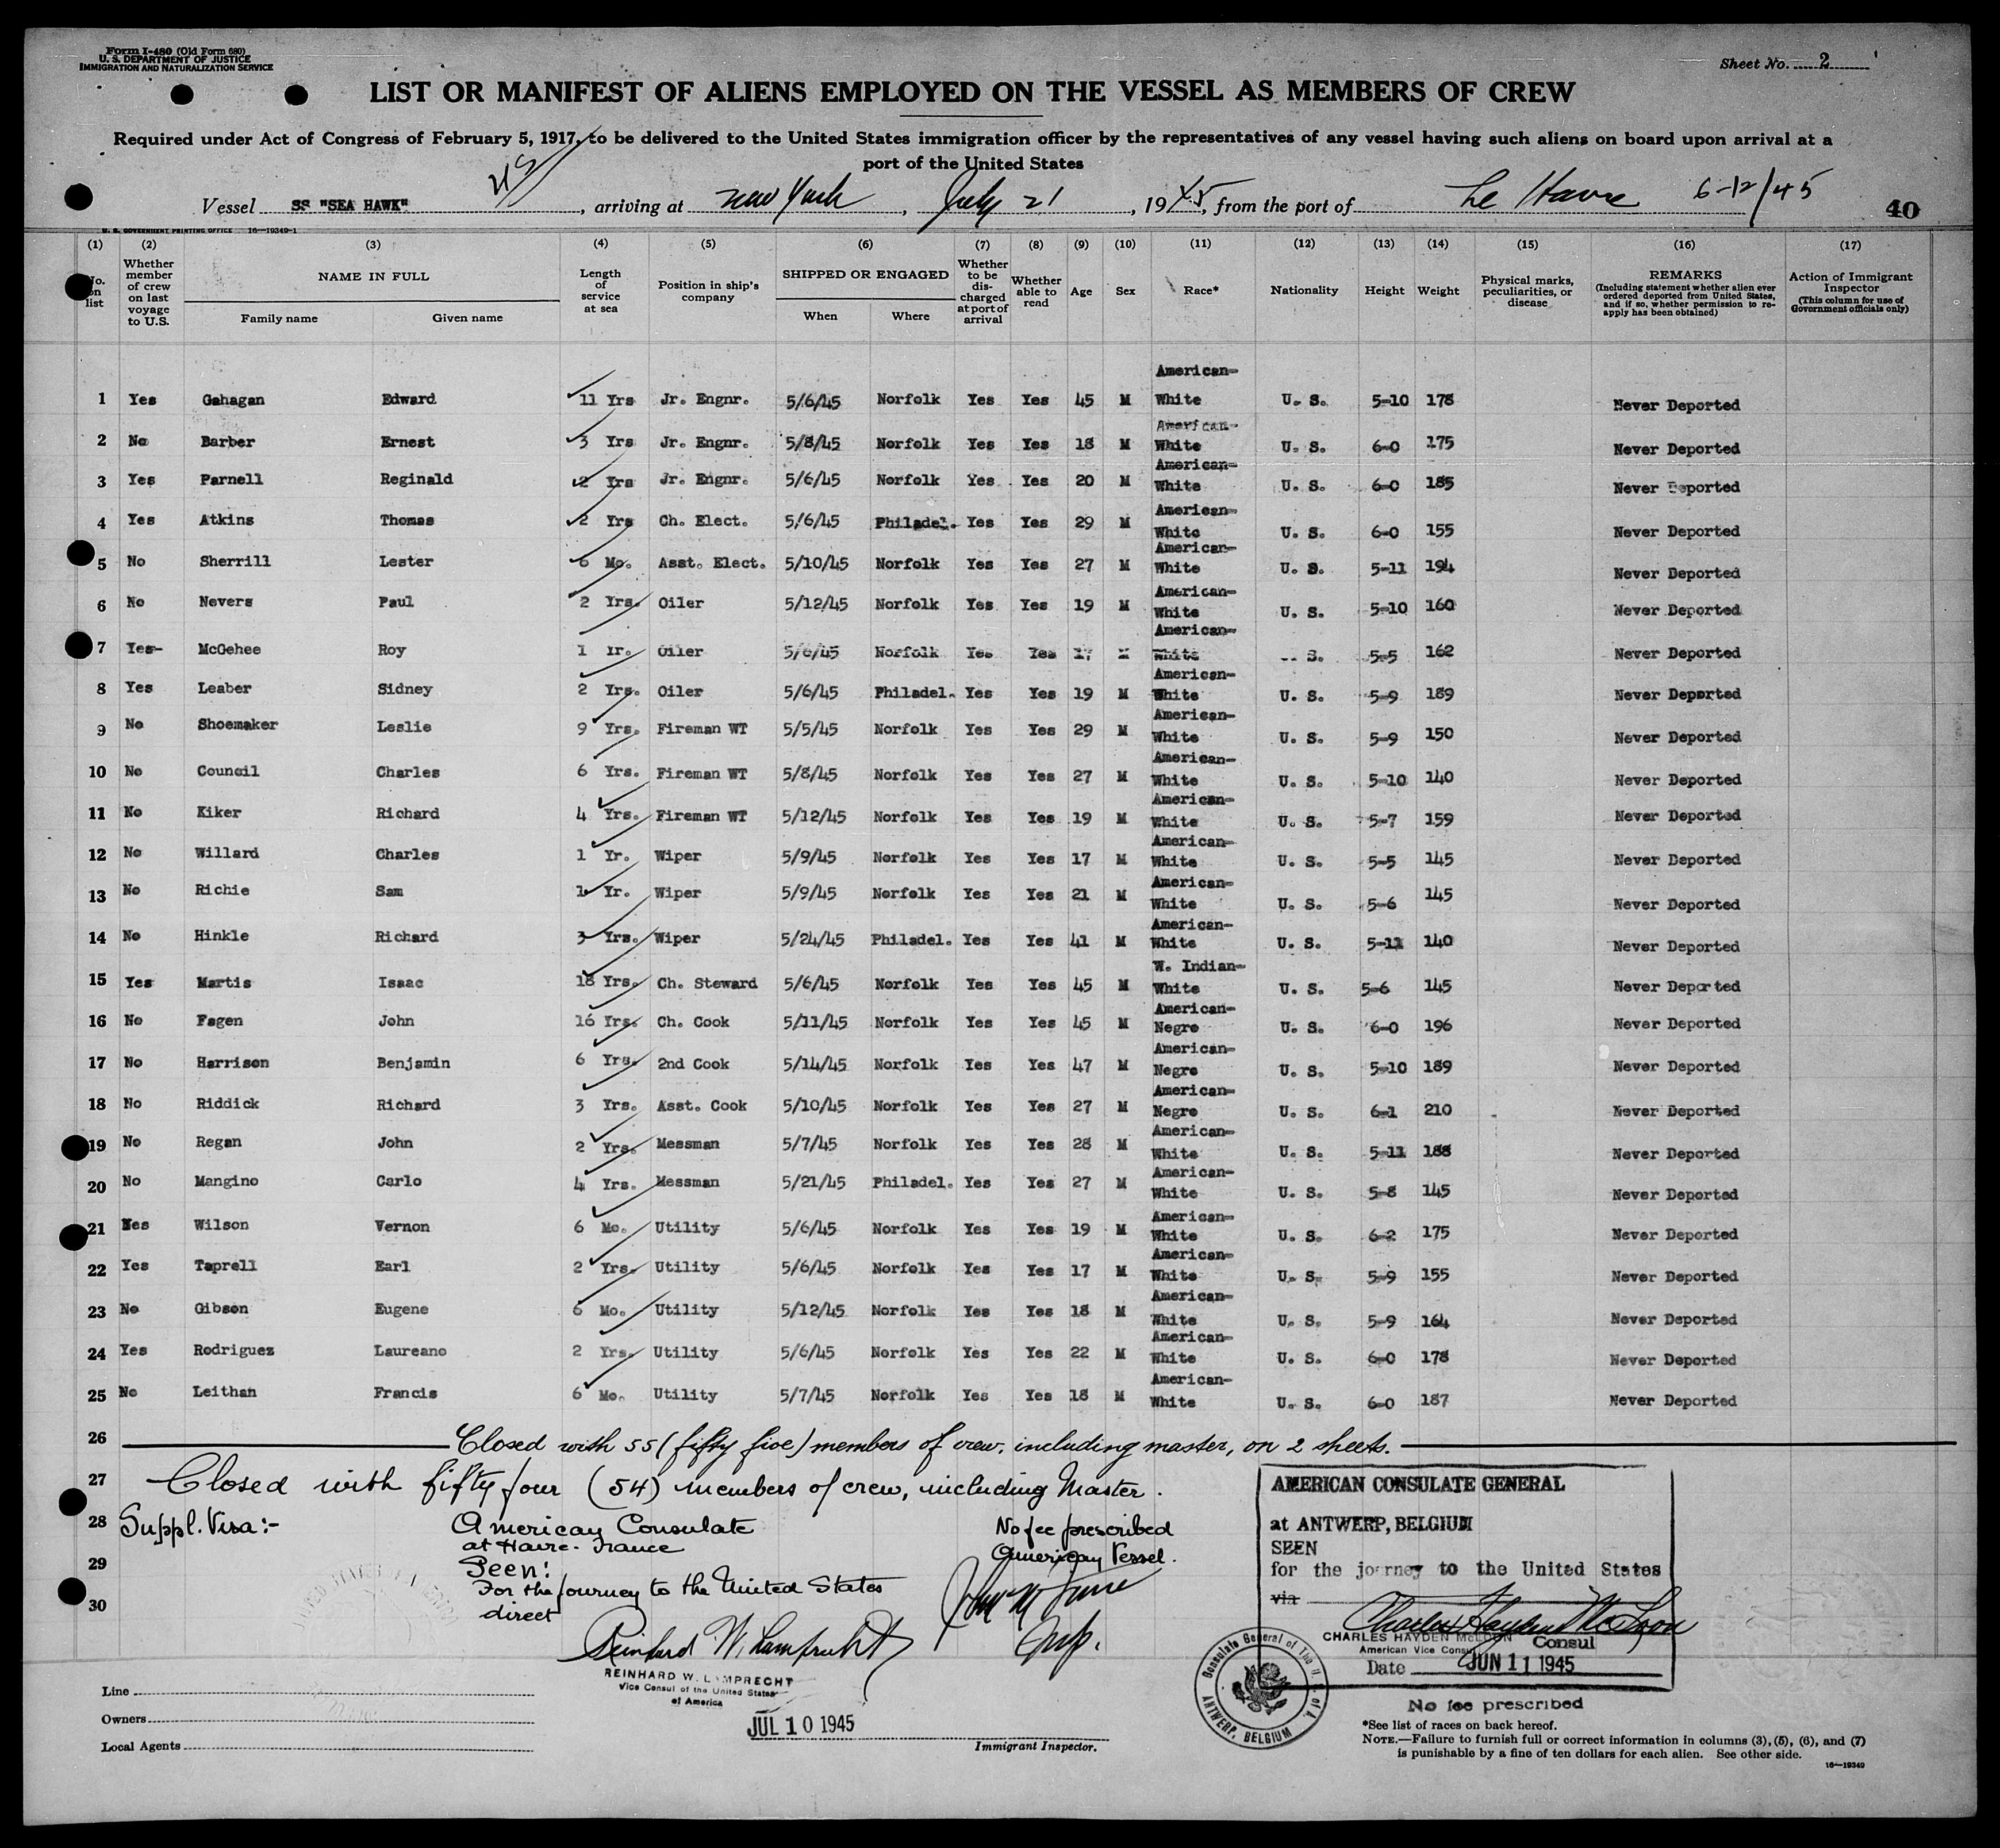 Form I-480 (Old Form 680)
U. S. DEPARTMENT OF JUSTICE
IMMIGRATION AND NATURALIZATION SERVICE
Sheet No. 2
LIST OR MANIFEST OF ALIENS EMPLOYED ON THE VESSEL AS MEMBERS OF CREW
Required under Act of Congress of February 5, 1917, to be delivered to the United States immigration officer by the representatives of any vessel having such aliens on board upon arrival at a
port of the United States
US
Vessel SS "SEA HAWK", arriving at New York, July 21, 1945, from the port of Le Havre 6-12/45
40
U. S. GOVERNMENT PRINTING OFFICE 16—19349-1
(1) (2) (3) (4) (5) (6) (7) (8) (9) (10) (11) (12) (13) (14) (15) (16) (17)
No. on list
Whether member of crew on last voyage to U.S.
NAME IN FULL
Family name Given name
Length of service at sea
Position in ship's company
SHIPPED OR ENGAGED
When Where
Whether to be discharged at port of arrival
Whether able to read
Age
Sex
Race*
Nationality
Height
Weight
Physical marks, peculiarities, or disease
REMARKS
(Including statement whether alien ever ordered deported from United States, and if so, whether permission to reapply has been obtained)
Action of Immigrant Inspector
(This column for use of Government officials only)
1 Yes Gahagan Edward 11 Yrs Jr. Engnr. 5/6/45 Norfolk Yes Yes 45 M American-White U. S. 5-10 178 Never Deported
2 No Barber Ernest 3 Yrs Jr. Engnr. 5/8/45 Norfolk Yes Yes 18 M American-White U. S. 6-0 175 Never Deported
3 Yes Parnell Reginald 2 Yrs Jr. Engnr. 5/6/45 Norfolk Yes Yes 20 M American-White U. S. 6-0 185 Never Deported
4 Yes Atkins Thomas 2 Yrs Ch. Elect. 5/6/45 Philadel. Yes Yes 29 M American-White U. S. 6-0 155 Never Deported
5 No Sherrill Lester 6 Mo. Asst. Elect. 5/10/45 Norfolk Yes Yes 27 M American-White U. S. 5-11 194 Never Deported
6 No Nevers Paul 2 Yrs. Oiler 5/12/45 Norfolk Yes Yes 19 M American-White U. S. 5-10 160 Never Deported
7 Yes- McGehee Roy 1 Yr. Oiler 5/6/45 Norfolk Yes Yes 17 M American-White U. S. 5-5 162 Never Deported
8 Yes Leaber Sidney 2 Yrs. Oiler 5/6/45 Philadel. Yes Yes 19 M American-White U. S. 5-9 189 Never Deported
9 No Shoemaker Leslie 9 Yrs. Fireman WT 5/5/45 Norfolk Yes Yes 29 M American-White U. S. 5-9 150 Never Deported
10 No Council Charles 6 Yrs. Fireman WT 5/8/45 Norfolk Yes Yes 27 M American-White U. S. 5-10 140 Never Deported
11 No Kiker Richard 4 Yrs. Fireman WT 5/12/45 Norfolk Yes Yes 19 M American-White U. S. 5-7 159 Never Deported
12 No Willard Charles 1 Yr. Wiper 5/9/45 Norfolk Yes Yes 17 M American-White U. S. 5-5 145 Never Deported
13 No Richie Sam 1 Yr. Wiper 5/9/45 Norfolk Yes Yes 21 M American-White U. S. 5-6 145 Never Deported
14 No Hinkle Richard 3 Yrs. Wiper 5/24/45 Philadel. Yes Yes 41 M American-White U. S. 5-11 140 Never Deported
15 Yes Martis Isaac 18 Yrs. Ch. Steward 5/6/45 Norfolk Yes Yes 45 M W. Indian-White U. S. 5-6 145 Never Deported
16 No Fagen John 16 Yrs. Ch. Cook 5/11/45 Norfolk Yes Yes 45 M American-Negro U. S. 6-0 196 Never Deported
17 No Harrison Benjamin 6 Yrs. 2nd Cook 5/14/45 Norfolk Yes Yes 47 M American-Negro U. S. 5-10 189 Never Deported
18 No Riddick Richard 3 Yrs. Asst. Cook 5/10/45 Norfolk Yes Yes 27 M American-Negro U. S. 6-1 210 Never Deported
19 No Regan John 2 Yrs. Messman 5/7/45 Norfolk Yes Yes 28 M American-White U. S. 5-11 188 Never Deported
20 No Mangino Carlo 4 Yrs. Messman 5/21/45 Philadel. Yes Yes 27 M American-White U. S. 5-8 145 Never Deported
21 Yes Wilson Vernon 6 Mo. Utility 5/6/45 Norfolk Yes Yes 19 M American-White U. S. 6-2 175 Never Deported
22 Yes Taprell Earl 2 Yrs. Utility 5/6/45 Norfolk Yes Yes 17 M American-White U. S. 5-9 155 Never Deported
23 No Gibson Eugene 6 Mo. Utility 5/12/45 Norfolk Yes Yes 18 M American-White U. S. 5-9 164 Never Deported
24 Yes Rodriguez Laureano 2 Yrs. Utility 5/6/45 Norfolk Yes Yes 22 M American-White U. S. 6-0 178 Never Deported
25 No Leithan Francis 6 Mo. Utility 5/7/45 Norfolk Yes Yes 18 M American-White U. S. 6-0 187 Never Deported
26 Closed with 55 (fifty five) members of crew, including master, on 2 sheets.
27 Closed with fifty four (54) members of crew, including Master.
28 Suppl. Visa:- American Consulate
at Havre-France
29 Seen:
For the journey to the United States
30 direct
No fee prescribed
American Vessel.
Reinhard W. Lamprecht
REINHARD W. LAMPRECHT
Vice Consul of the United States
of America
JUL 10 1945
AMERICAN CONSULATE GENERAL
at ANTWERP, BELGIUM
SEEN
for the journey to the United States
via
Charles Hayden McLoon
CHARLES HAYDEN McLOON Consul
American Vice Consul
Date JUN 11 1945
Consulate General of The U. S. of A.
ANTWERP, BELGIUM
No fee prescribed
Line
Owners
Local Agents
Immigrant Inspector.
*See list of races on back hereof.
NOTE.—Failure to furnish full or correct information in columns (3), (5), (6), and (7)
is punishable by a fine of ten dollars for each alien. See other side.
16—19349